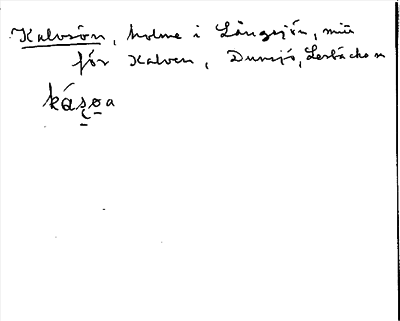 Kalvsön, holme i Långsjön, mitt
för Kalven, Dunsjö, Lerbäcks sn
kás̨o̱a